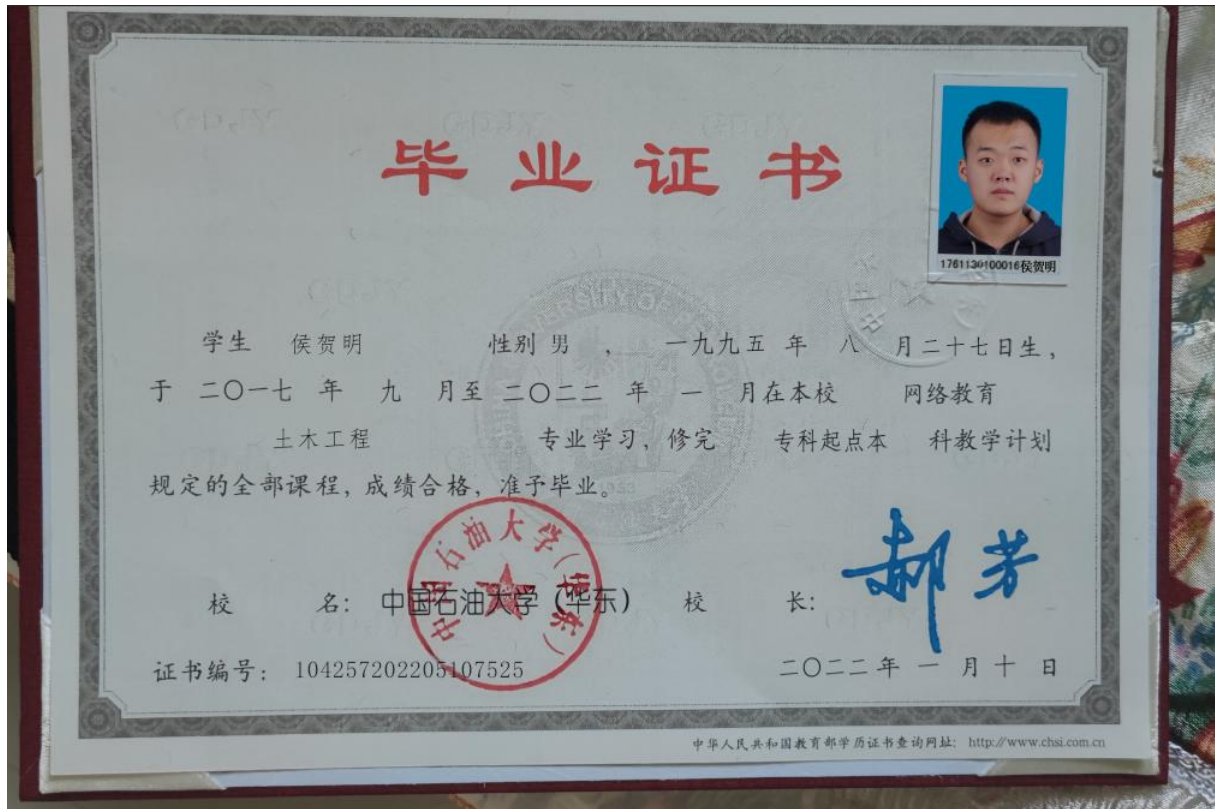 毕业证书
1761130100016侯贺明
学生 侯贺明 性别 男 ， 一九九五 年 八 月二十七日生，
于 二〇一七 年 九 月至 二〇二二 年 一 月在本校 网络教育
土木工程 专业学习，修完 专科起点本 科教学计划
规定的全部课程，成绩合格，准予毕业。
中国石油大学（华东）
校 名： 中国石油大学（华东） 校 长： 郝芳
证书编号： 104257202205107525 二〇二二年 一 月 十 日
中华人民共和国教育部学历证书查询网址： http://www.chsi.com.cn